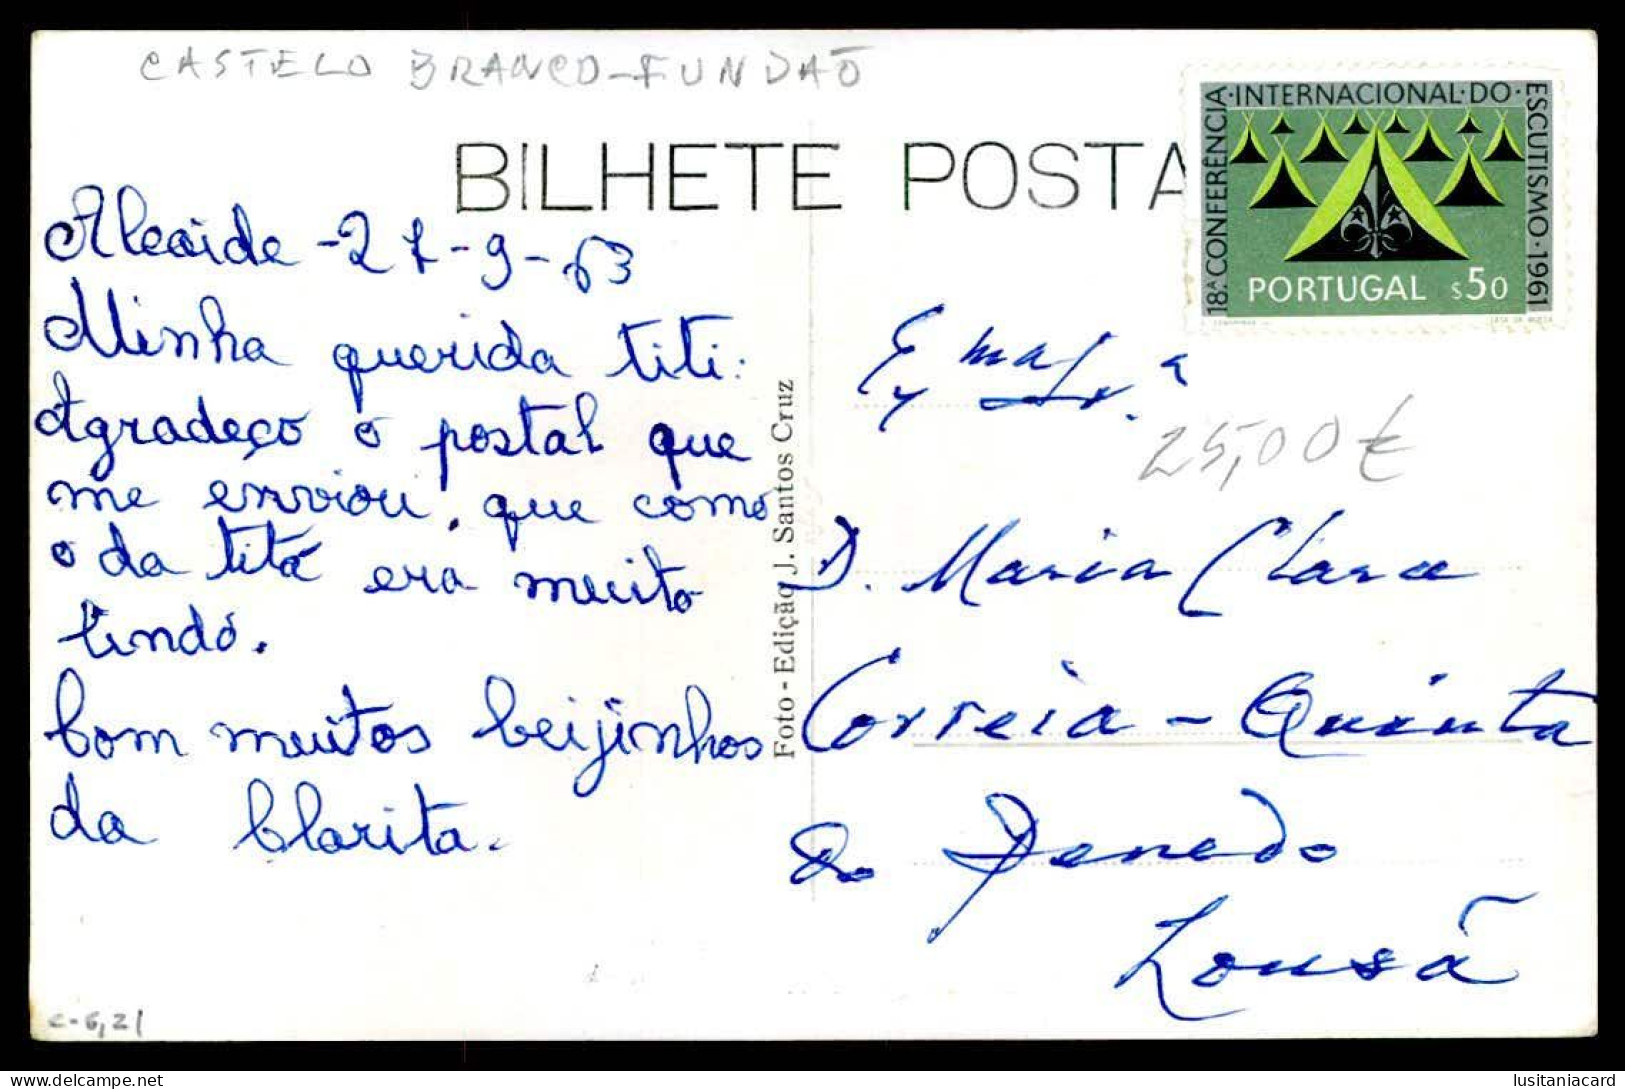 CASTELO BRANCO-FUNDÃO
BILHETE POSTA
18.ª CONFERÊNCIA·INTERNACIONAL·DO·ESCUTISMO·1961
PORTUGAL $50
Alcaide - 27-9-63
Minha querida titi:
Agradeço o postal que
me enviou, que como
o da titá era muito
lindo.
Com muitos beijinhos
da Clarita.
Foto - Edição J. Santos Cruz
Exma Sr.ª
25,00€
D. Maria Clara
Correia - Quinta
do Penedo
Lousã
c-6,21
lusitaniacard